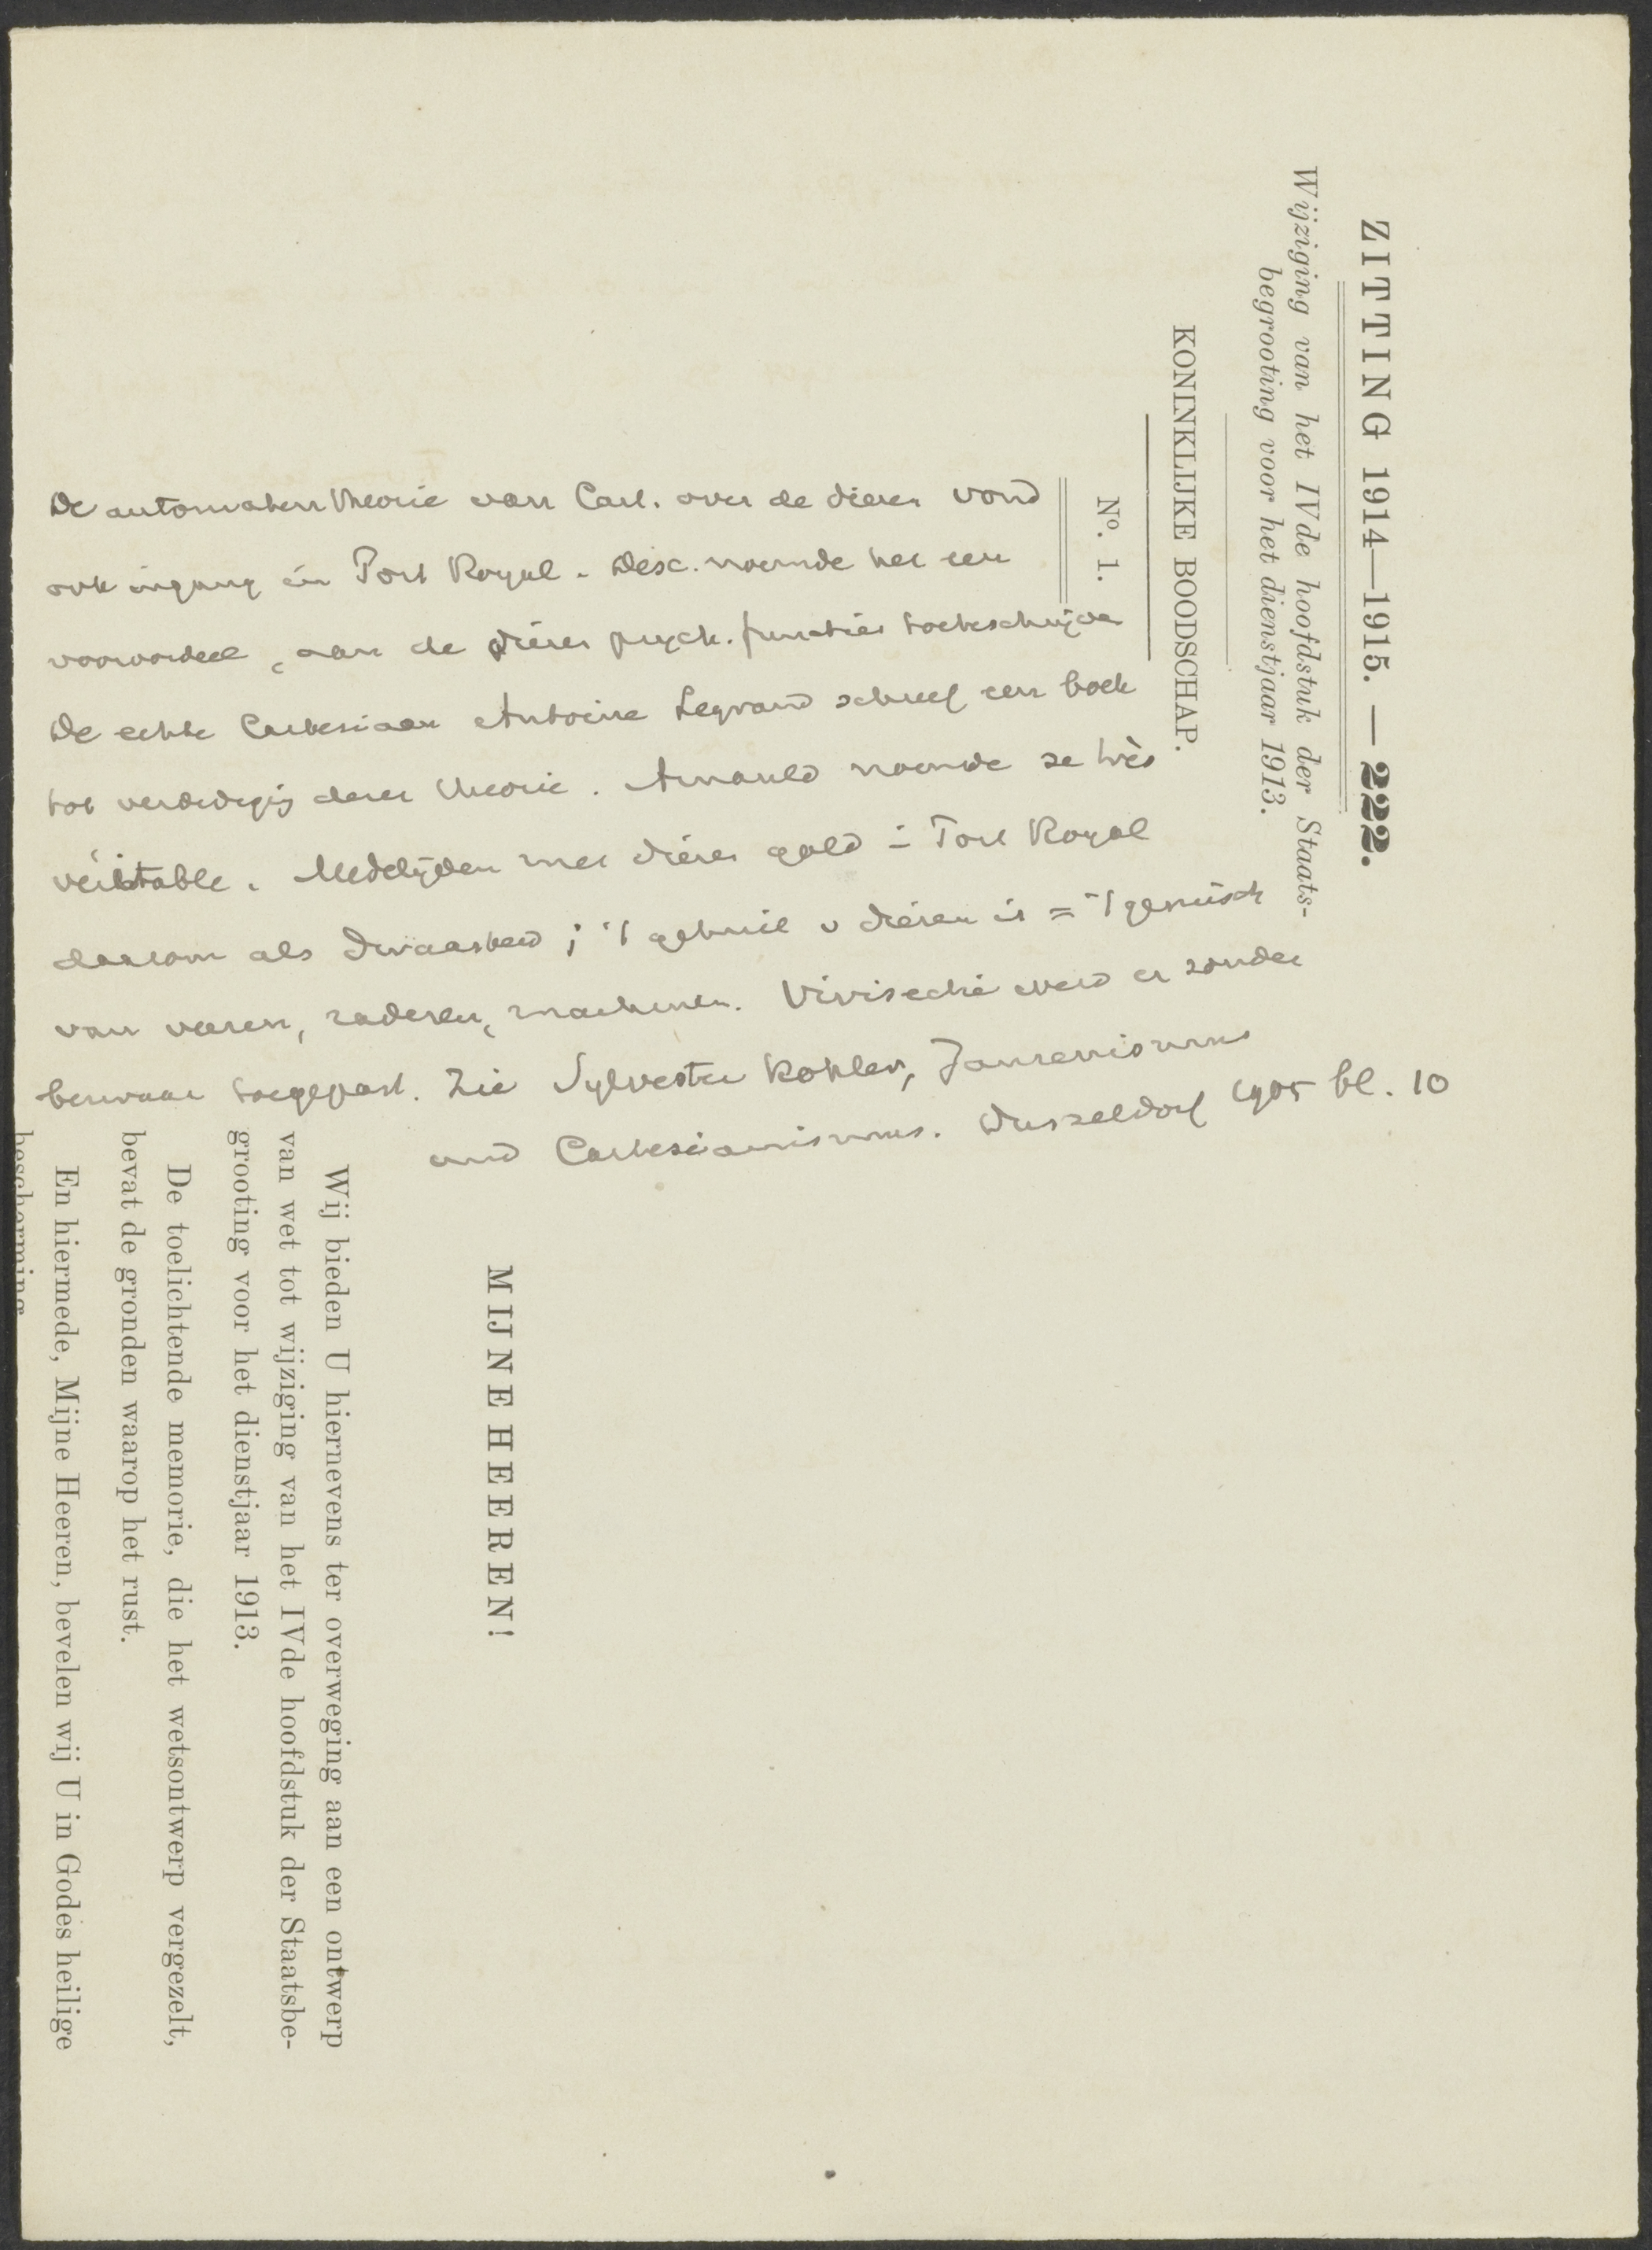 ZITTING 1914—1915. — 222.
Wijziging van het IVde hoofdstuk der Staats-
begrooting voor het dienstjaar 1913.
KONINKLIJKE BOODSCHAP.
No. 1.
De automatentheorie van Cart. over de dieren vond
ook ingang in Port Royal. Desc. noemde het een
vooroordeel, aan de dieren psych. functies toeteschrijven
De echte Cartesiaan Antoine Legrand schreef een boek
tot verdediging dezer theorie. Arnauld noemde ze très
véritable. Medelijden met dieren gold in Port Royal
daarom als dwaasheid; 't gehuil v dieren is = 't geruisch
van veeren, raderen, machines. Vivisectie werd er zonder
bezwaar toegepast. Zie Sylvester Kohler, Jansenismus
und Cartesianismus. Dusseldorf 1905 bl. 10
MIJNE HEEREN!
Wij bieden U hiernevens ter overweging aan een ontwerp
van wet tot wijziging van het IVde hoofdstuk der Staatsbe-
grooting voor het dienstjaar 1913.
De toelichtende memorie, die het wetsontwerp vergezelt,
bevat de gronden waarop het rust.
En hiermede, Mijne Heeren, bevelen wij U in Godes heilige
bescherming